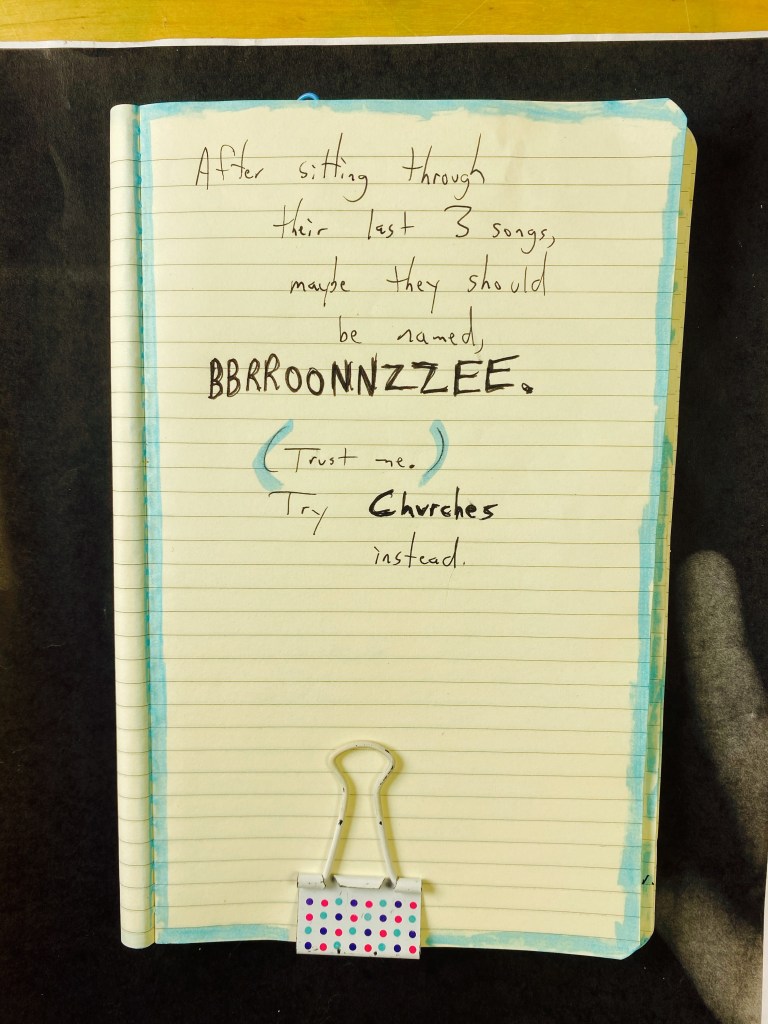 After sitting through
their last 3 songs,
maybe they should
be named,
BBRROONNZZEE.
(Trust me.)
Try Chvrches
instead.